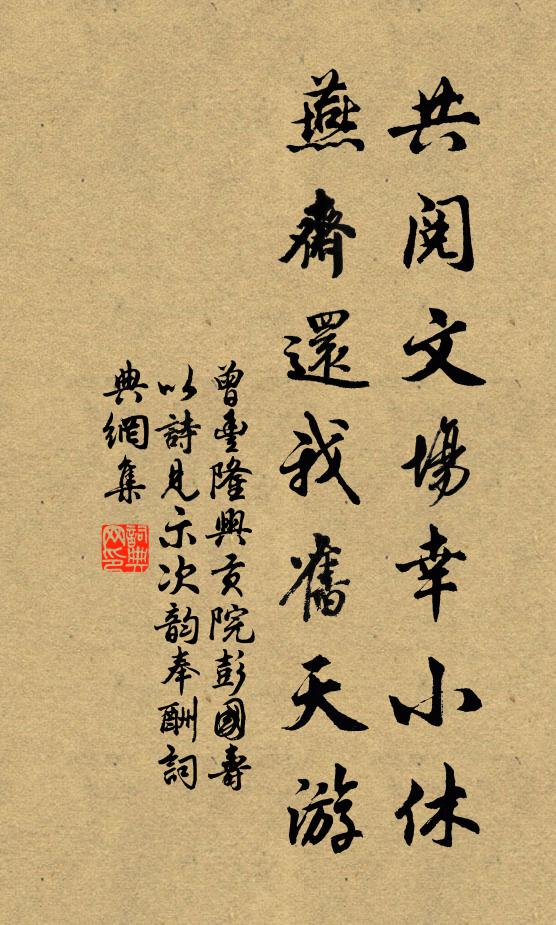 共閱文場幸小休
燕齋還我舊天游
曾豐隆興貢院彭國壽
以詩見示次韵奉酬詞
典網集
詞典
网印